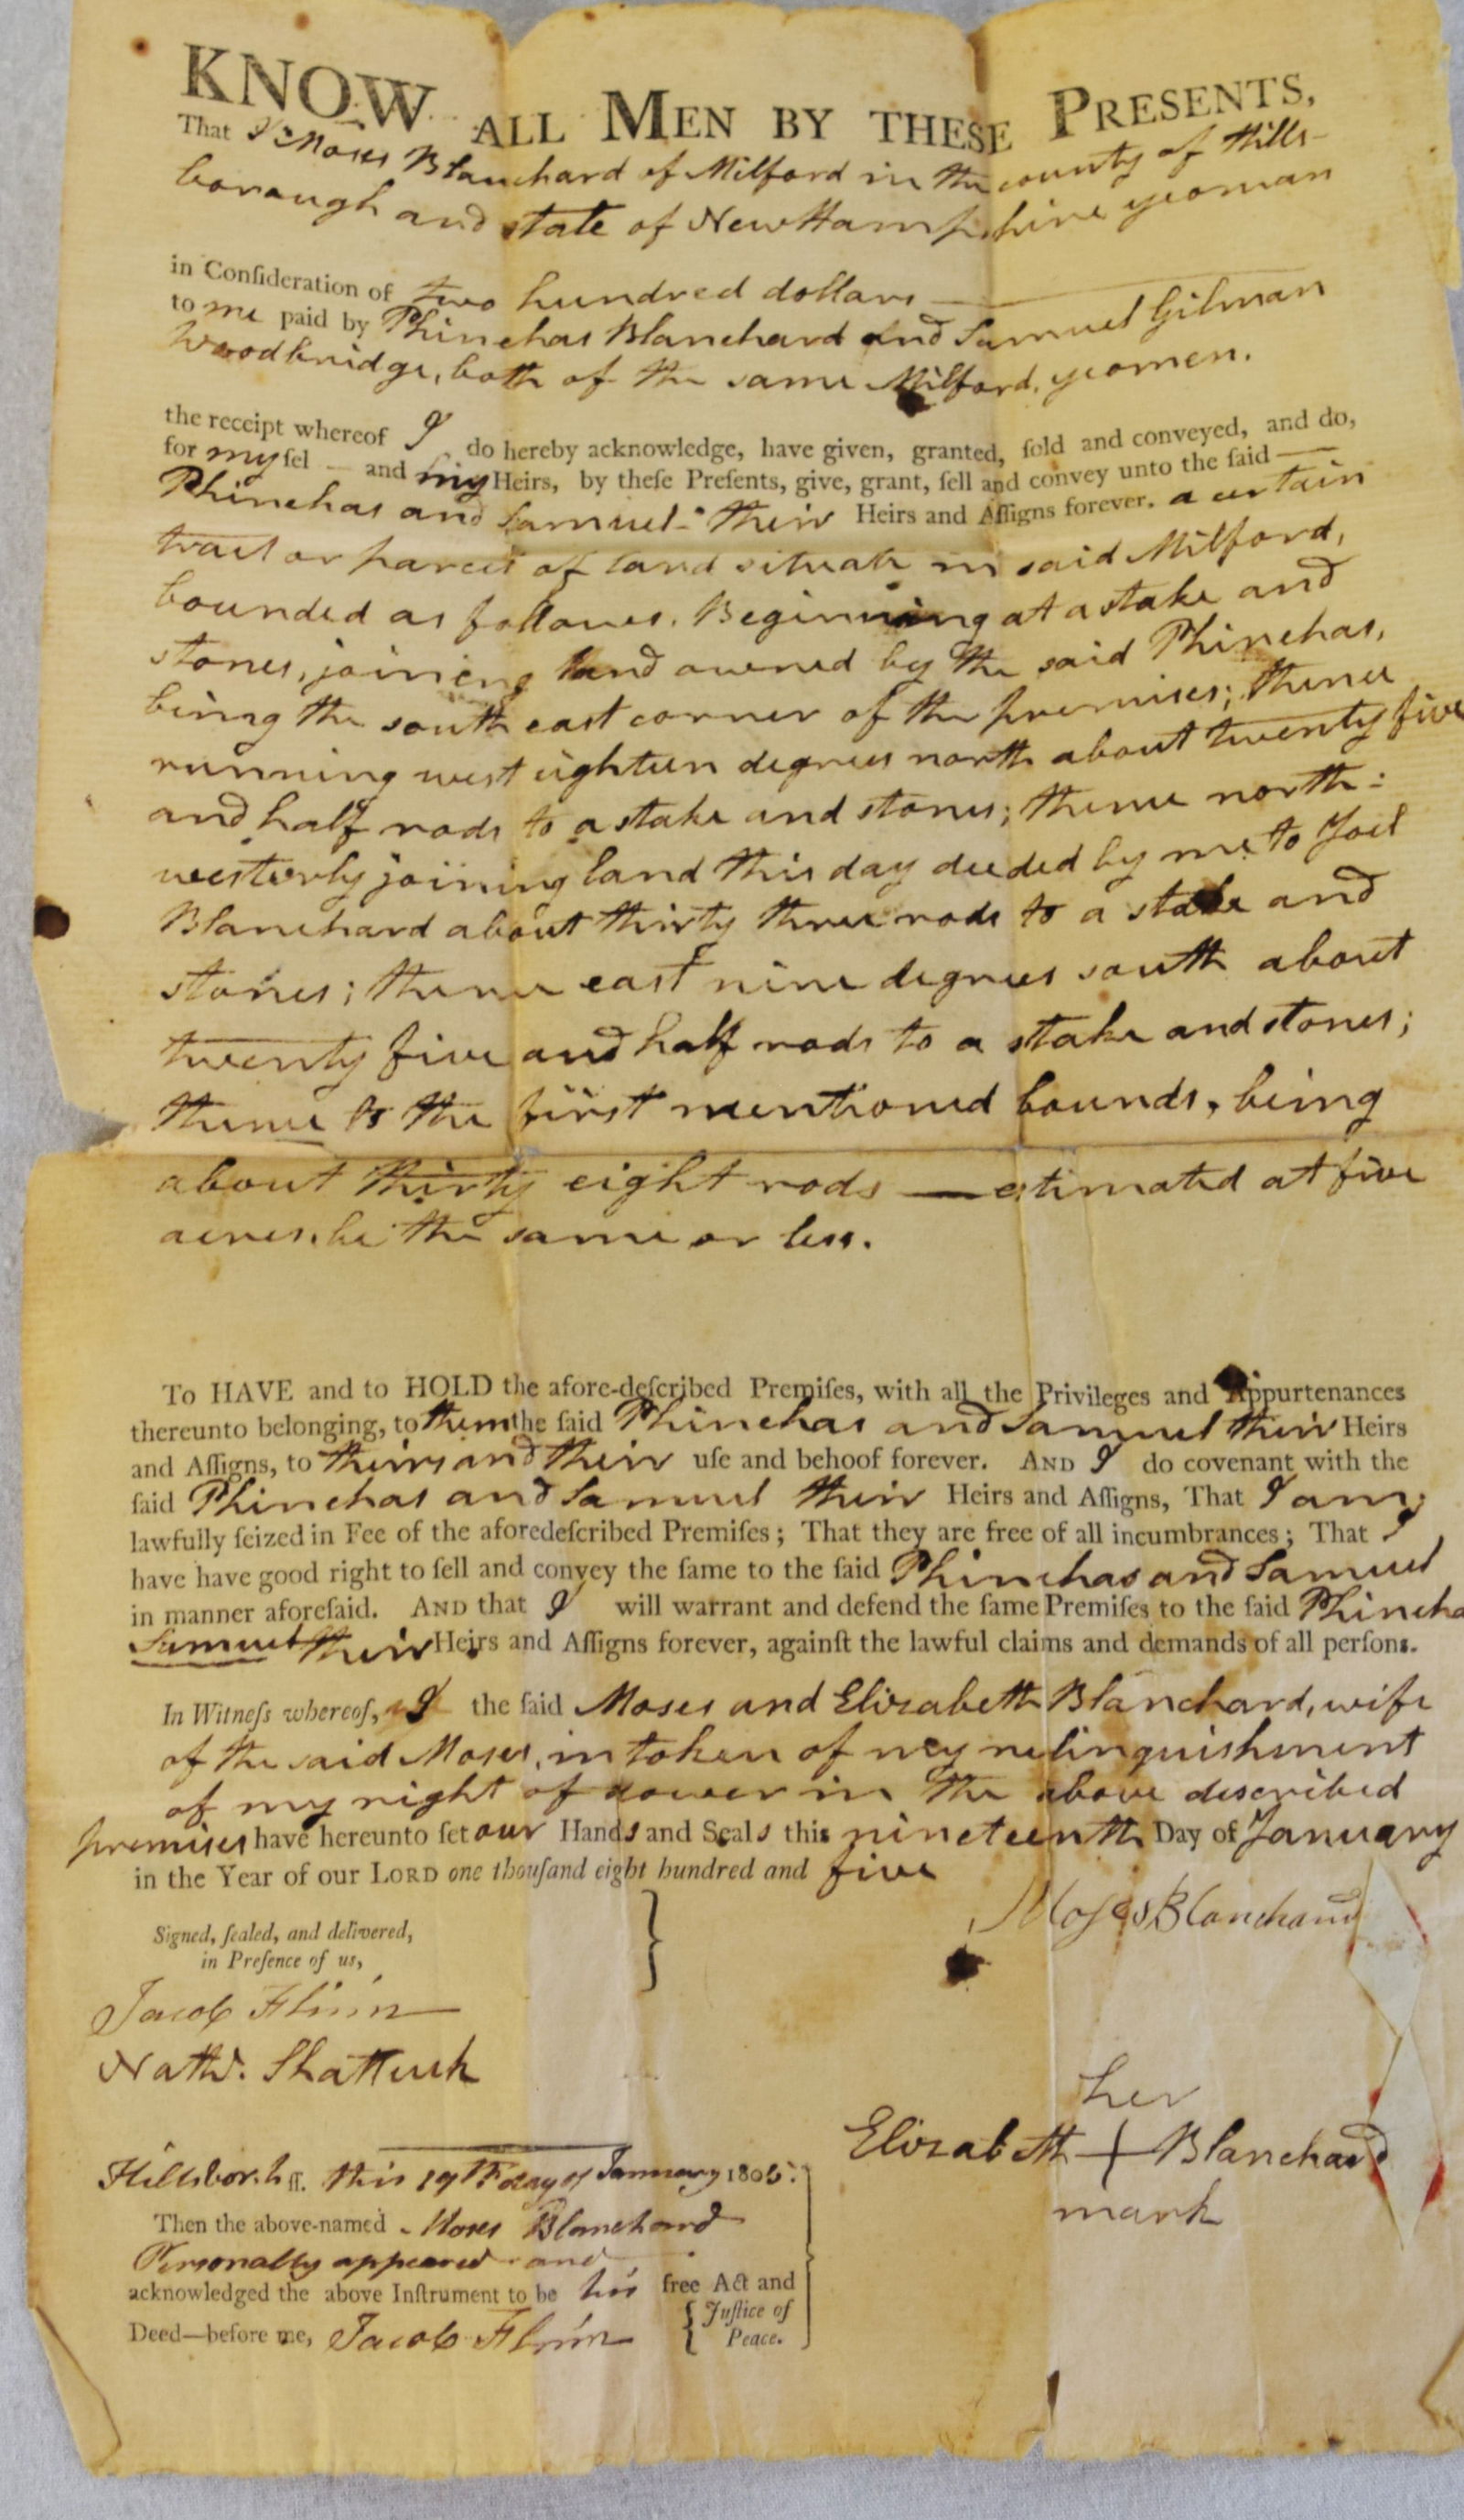 KNOW ALL MEN BY THESE PRESENTS,
That I Moses Blanchard of Milford in the county of Hills-
borough and state of New Hampshire yeoman
in Conſideration of two hundred dollars —
to me paid by Phinehas Blanchard and Samuel Gilman
Woodbridge, both of the same Milford, yeomen.
the receipt whereof I do hereby acknowledge, have given, granted, ſold and conveyed, and do,
for myſel — and my Heirs, by theſe Preſents, give, grant, ſell and convey unto the ſaid —
Phinehas and Samuel their Heirs and Aſſigns forever. a certain
tract or parcel of land situate in said Milford,
bounded as follows. Beginning at a stake and
stones, joining land owned by the said Phinehas,
being the south east corner of the premises; thence
running west eighteen degrees north about twenty five
and half rods to a stake and stones; thence north-
westerly joining land this day deeded by me to Joel
Blanchard about thirty three rods to a stake and
stones; thence east nine degrees south about
twenty five and half rods to a stake and stones;
thence to the first mentioned bounds, being
about thirty eight rods — estimated at five
acres, be the same or less.
To HAVE and to HOLD the afore-deſcribed Premiſes, with all the Privileges and Appurtenances
thereunto belonging, to them the ſaid Phinehas and Samuel their Heirs
and Aſſigns, to theirs and their uſe and behoof forever. AND I do covenant with the
ſaid Phinehas and Samuel their Heirs and Aſſigns, That I am
lawfully ſeized in Fee of the aforedeſcribed Premiſes; That they are free of all incumbrances; That I
have have good right to ſell and convey the ſame to the ſaid Phinehas and Samuel
in manner aforeſaid. AND that I will warrant and defend the ſame Premiſes to the ſaid Phineha
Samuel their Heirs and Aſſigns forever, againſt the lawful claims and demands of all perſons.
In Witneſs whereof, I the ſaid Moses and Elizabeth Blanchard, wife
of the said Moses, in token of my relinquishment
of my right of dower in the above described
premises have hereunto ſet our Hands and Seals this nineteenth Day of January
in the Year of our LORD one thouſand eight hundred and five
Moses Blanchard
Signed, ſealed, and delivered,
in Preſence of us,
Jacob Flinn
Nathl. Shattuck
her
Elizabeth + Blanchard
mark
Hillsbor.h ſſ. this 19th day of January 1805.
Then the above-named Moses Blanchard
Personally appeared and
acknowledged the above Inſtrument to be his free Act and
Deed—before me, Jacob Flinn { Juſtice of
Peace.